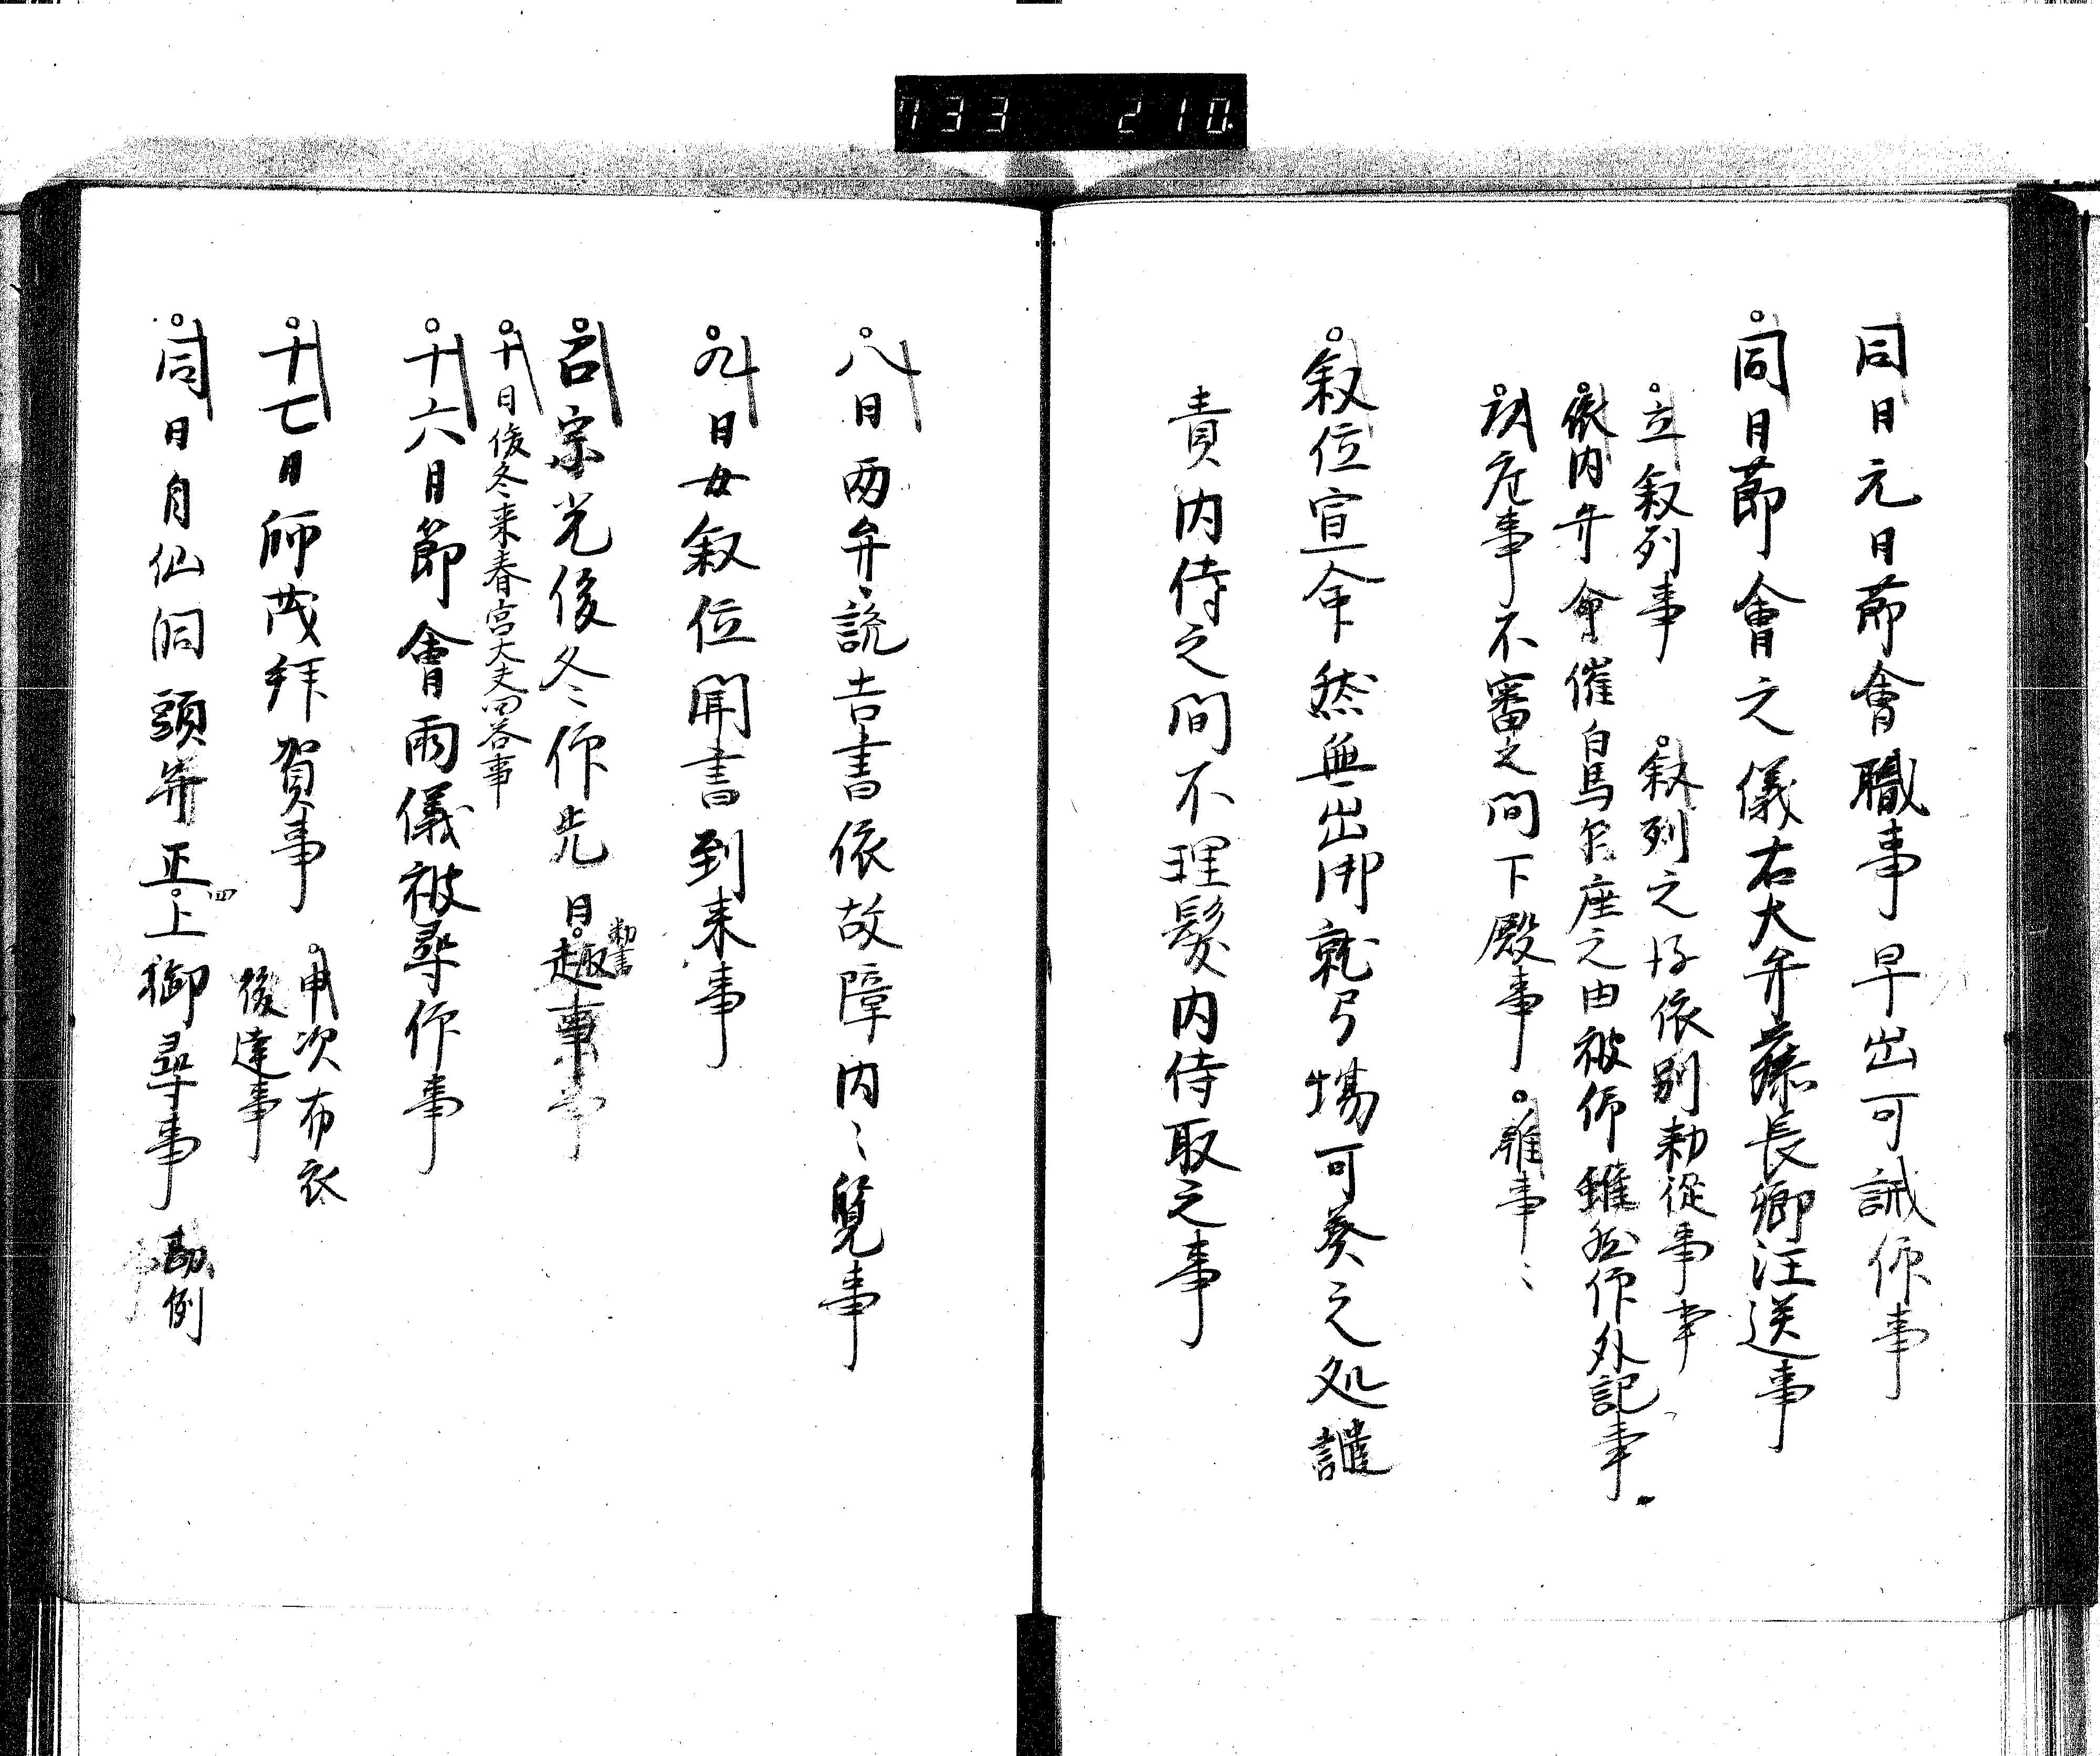 733 210
同日元日節會職事早出可誡仰事
同日節會之儀右大弁藤長卿注送事
立叙列事 叙列之儀依別勅従事事
依内弁會催白馬乍座之由被仰雖然仰外記事
事不審之間下殿事 雑事〻
叙位宣命然無出御就弓場可奏之処譴
責内侍之間不理髪内侍取之事
八日両弁説吉書依故障内〻覧事
九日女叙位聞書到来事
召宗光俊冬仰先日勅書趣事
十日俊冬来春宮大夫問答事
十六日節會雨儀被尋仰事
十七日師茂拜賀事 申次布衣
後達事
同日自仙洞頭弁正四上御尋事 勘例